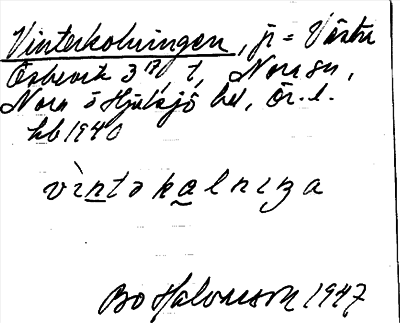 Vinterkolningen, jr = Västra
Ösbervik 3¹⁷, t, Nora sn,
Nora o Hjulsjö hd, Ör. l.
hb 1940
vìntəkalnıŋa
Bo Halvarson 1947